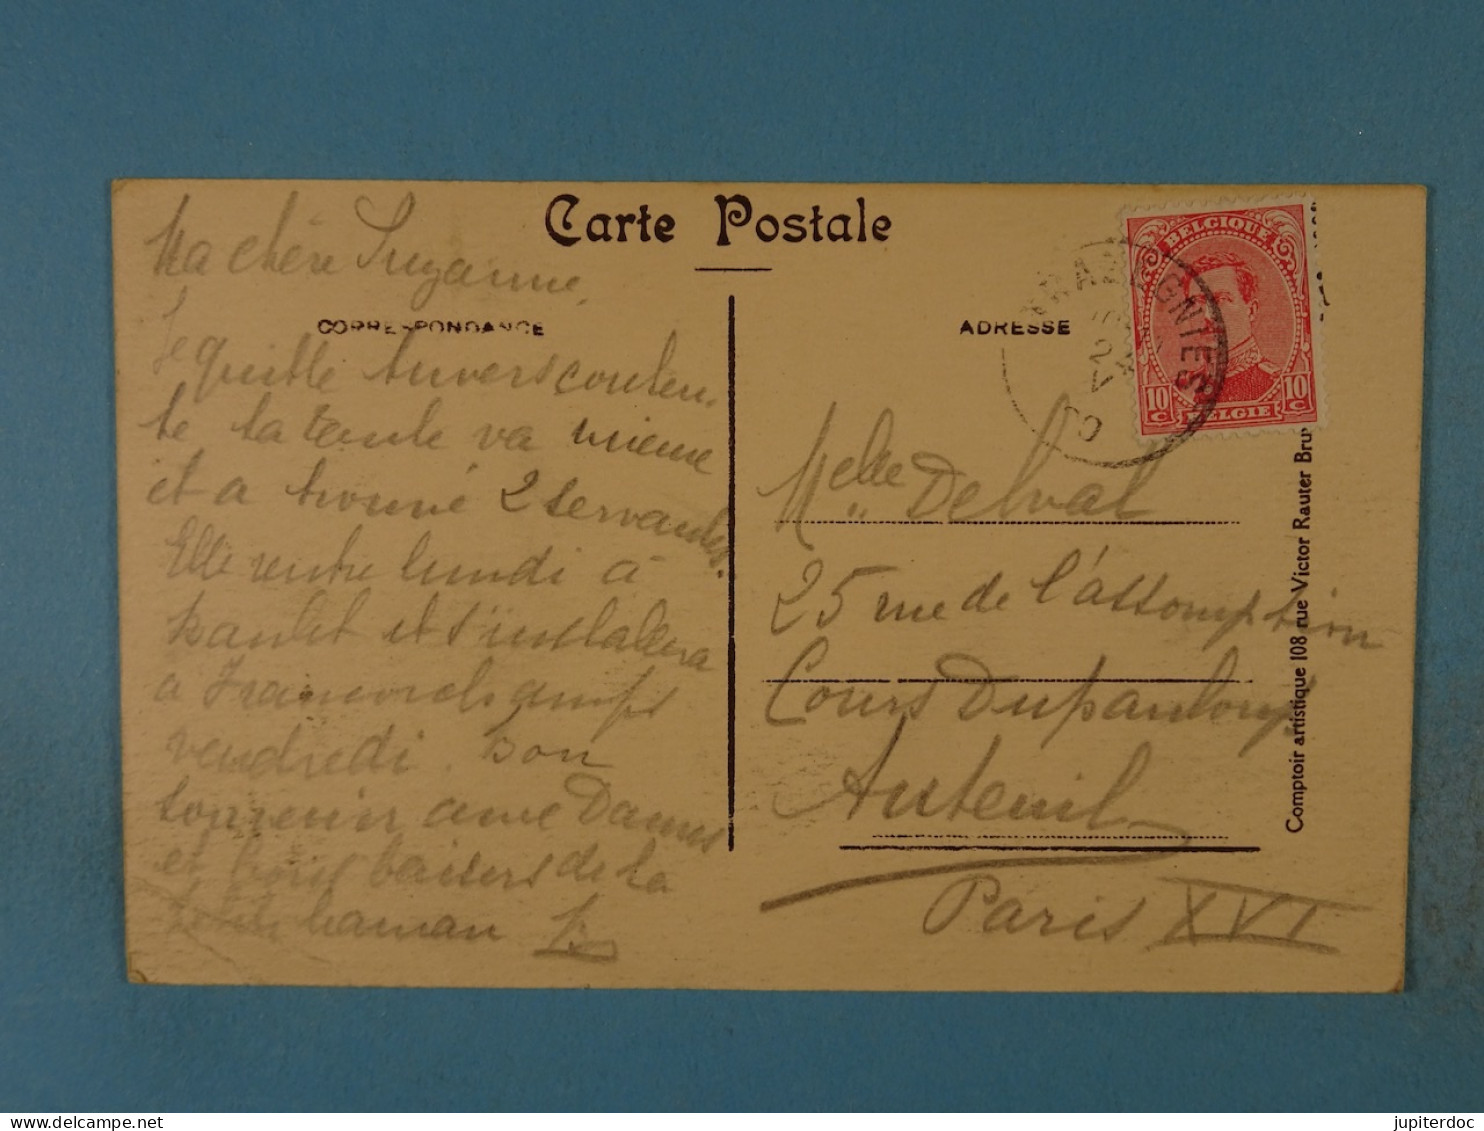 Carte Postale
CORRESPONDANCE
Ma chère Suzanne,
Je quitte Anvers conten-
te ta tante va mieux
et a trouvé 2 servantes.
Elle rentre lundi à
et s'installera
à Francorchamps
vendredi. Bon
souvenir aux Dames
et bons baisers de ta
petite maman
ADRESSE
BELGIQUE
10 C 10 C
BELGIE
Melle Delval
25 rue de l'assomption
Cours Dupanloup
Auteuil
Paris XVI
Comptoir artistique 108 rue Victor Rauter Bru
jupiterdoc